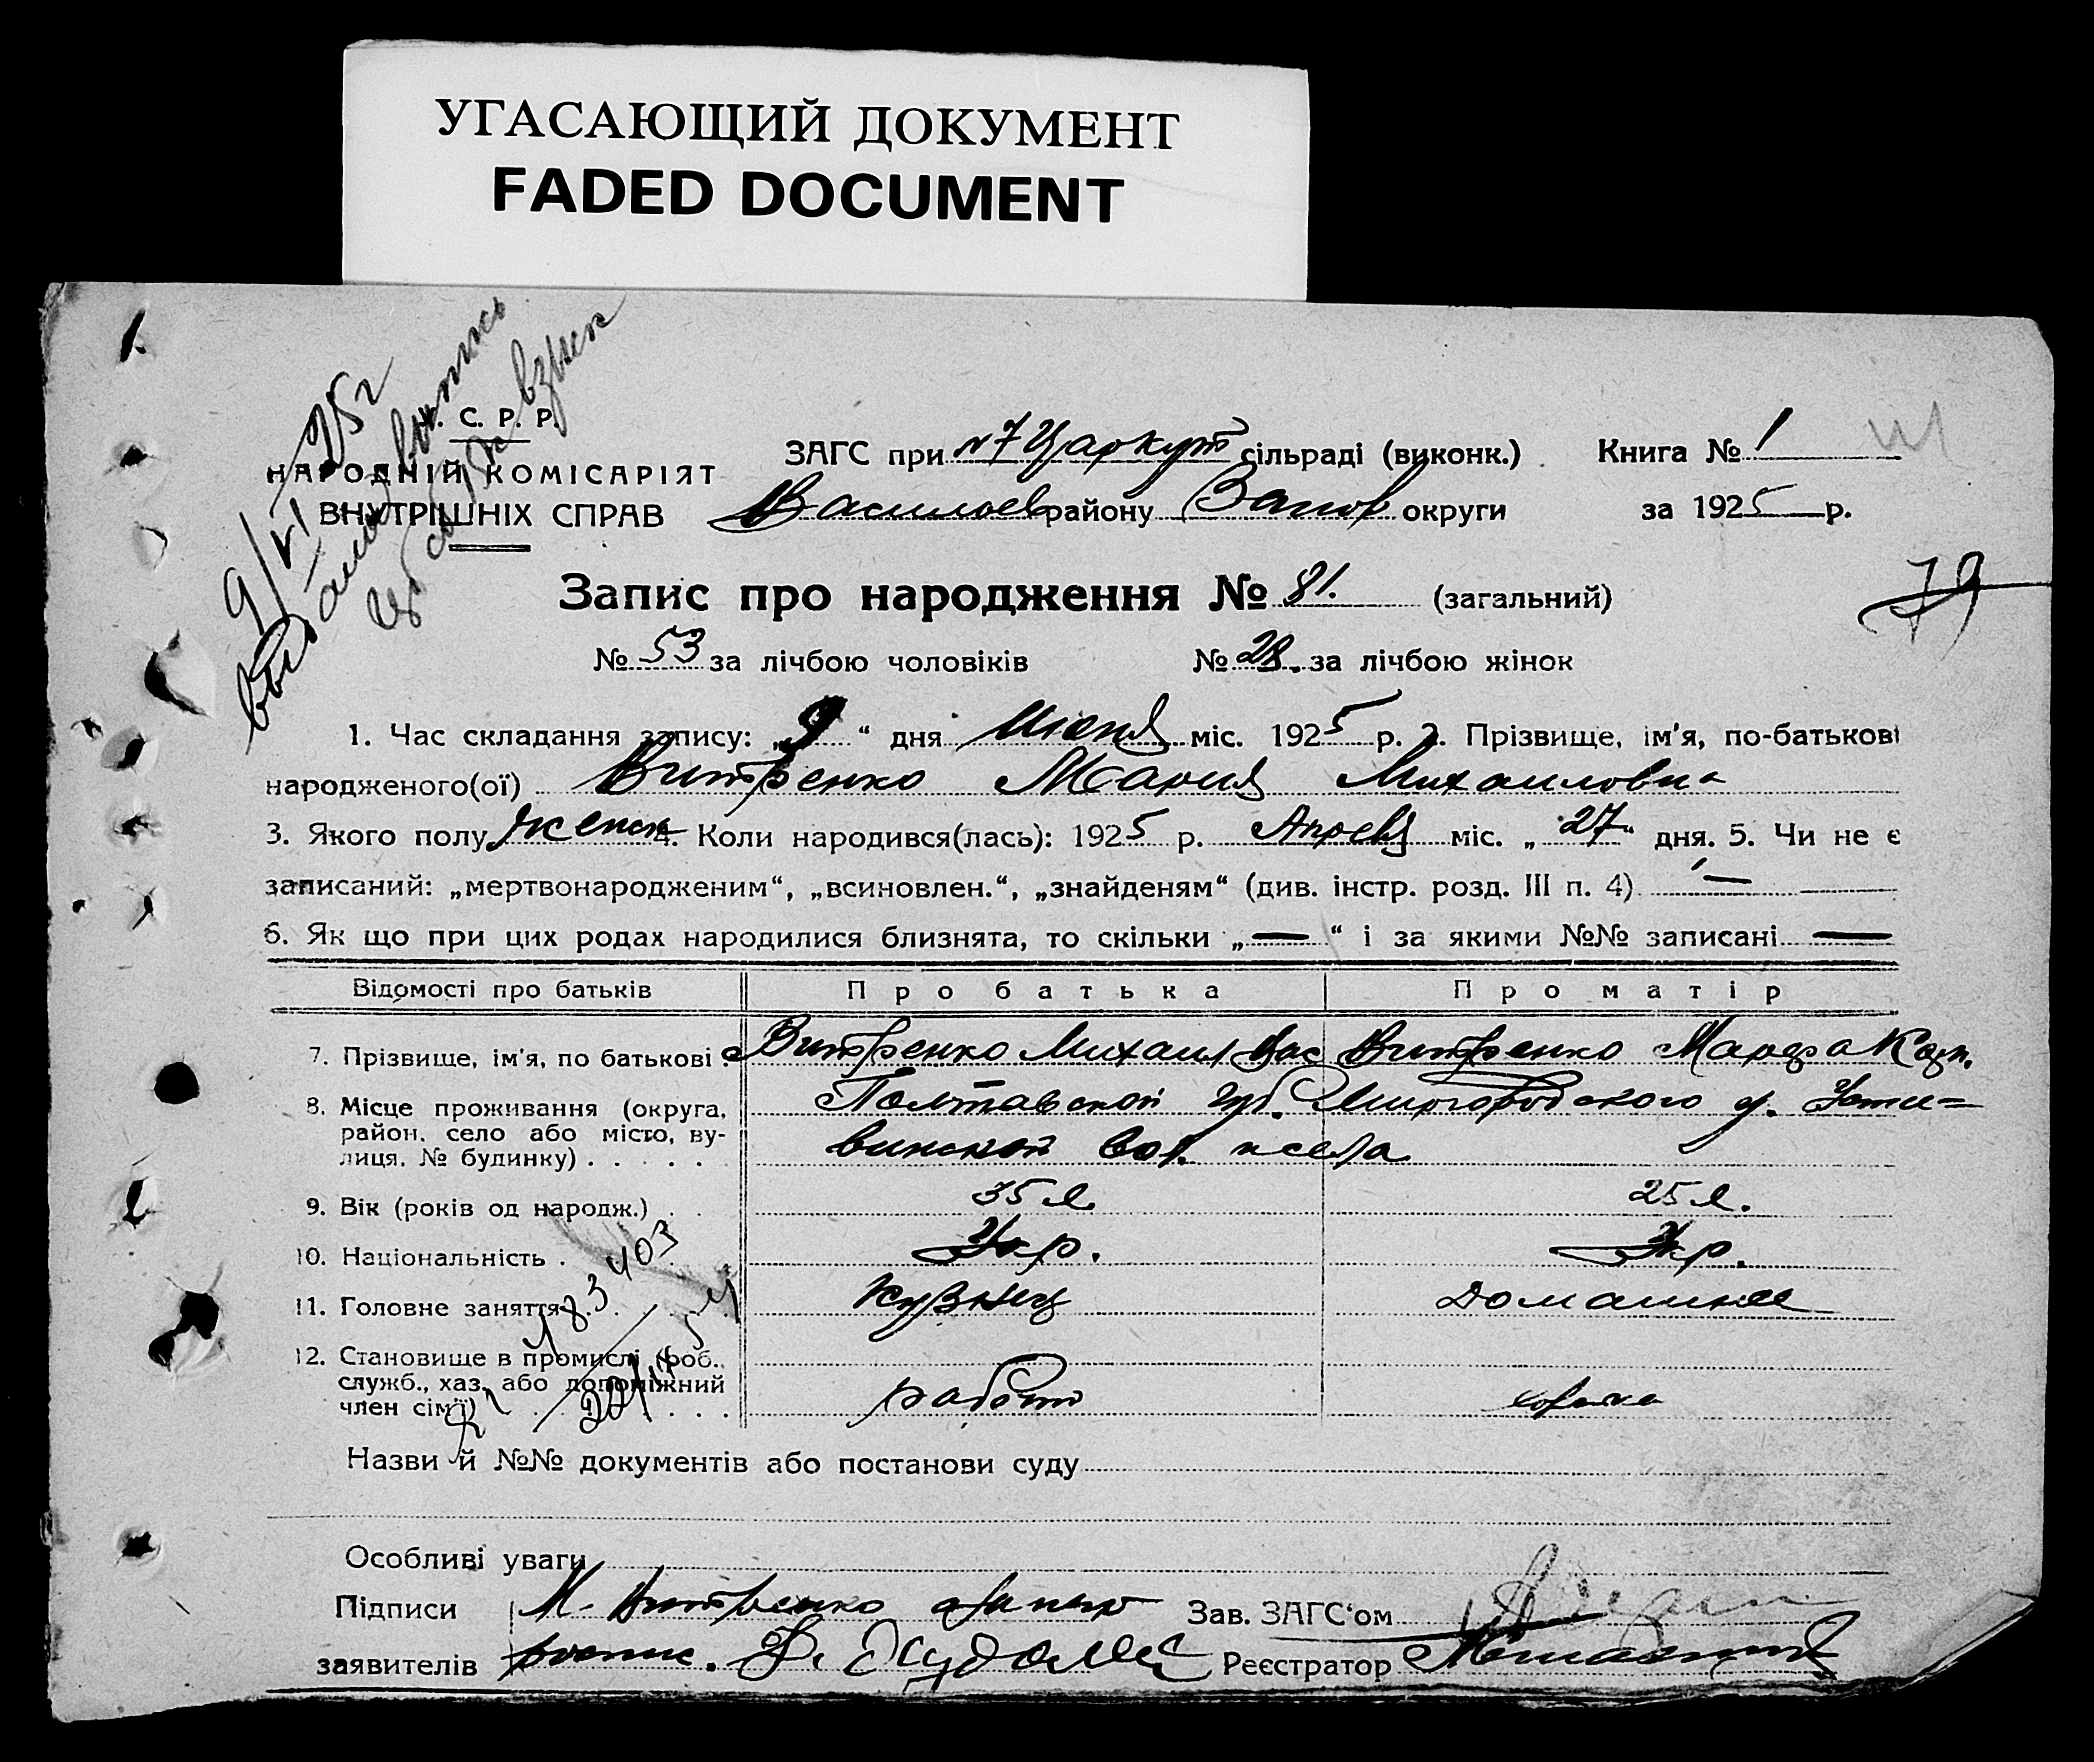 УГАСАЮЩИЙ ДОКУМЕНТ
FADED DOCUMENT
1.
9/VI 25 г
С. Р. Р.
НАРОДНІЙ КОМІСАРІЯТ
ВНУТРІШНІХ СПРАВ
ЗАГС при сільраді (виконк.) Книга № 1
Васильев району Запор округи за 1925 р.
79
Запис про народження № 81. (загальний)
№ 53 за лічбою чоловіків № 28. за лічбою жінок
1. Час складання запису: „9“ дня Июня міс. 1925 р. 2. Прізвище, ім'я, по-батькові
народженого(ої) Витренко Мария Михаиловна
3. Якого полу женск 4. Коли народився(лась): 1925 р. Апреля міс. „27“ дня. 5. Чи не є
записаний: „мертвонародженим“, „всиновлен.“, „знайденям“ (див. інстр. розд. III п. 4) —
6. Як що при цих родах народилися близнята, то скільки „—“ і за якими №№ записані —
Відомості про батьків Про батька Про матір
7. Прізвище, ім'я, по батькові . Витренко Михаил Витренко Марфа
8. Місце проживання (округа, Полтавской губ. Миргородского у. Усти=
район, село або місто, ву- винской вол. села
лиця, № будинку) . . . . .
9. Вік (років од народж.) . . 35 л. 25 л.
10. Національність . Укр. Укр.
11. Головне заняття Кузнец Домашнее
12. Становище в промислі (роб.,
служб., хаз. або допоміжний
член сім'ї) работ
Назви й №№ документів або постанови суду
Особливі уваги
Підписи М. Витренко Зав. ЗАГС'ом
заявителів Реєстратор